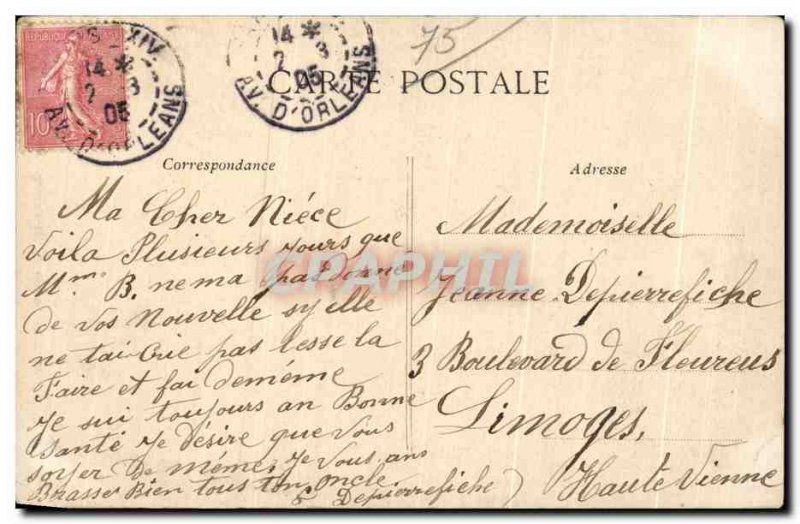 XIV
14 *
2 3
05
AV. D'ORLÉANS
10
14 *
2 3
05
AV. D'ORLÉANS
75
CARTE POSTALE
Correspondance
Adresse
Ma Cher Niéce
Voila Plusieurs jours que
Mme B. ne ma pas Donné
de vos Nouvelle sy elle
ne tai Crie pas lesse la
Faire et fai demême
Je sui toujours an Bonne
Santé Je désire que Vous
soyer De même, Je Vous ans
Brasse Bien tous ton oncle
E Depierrefiche
Mademoiselle
Jeanne Depierrefiche
3 Boulevard de Fleureus
Limoges,
Haute Vienne
CPAPHIL